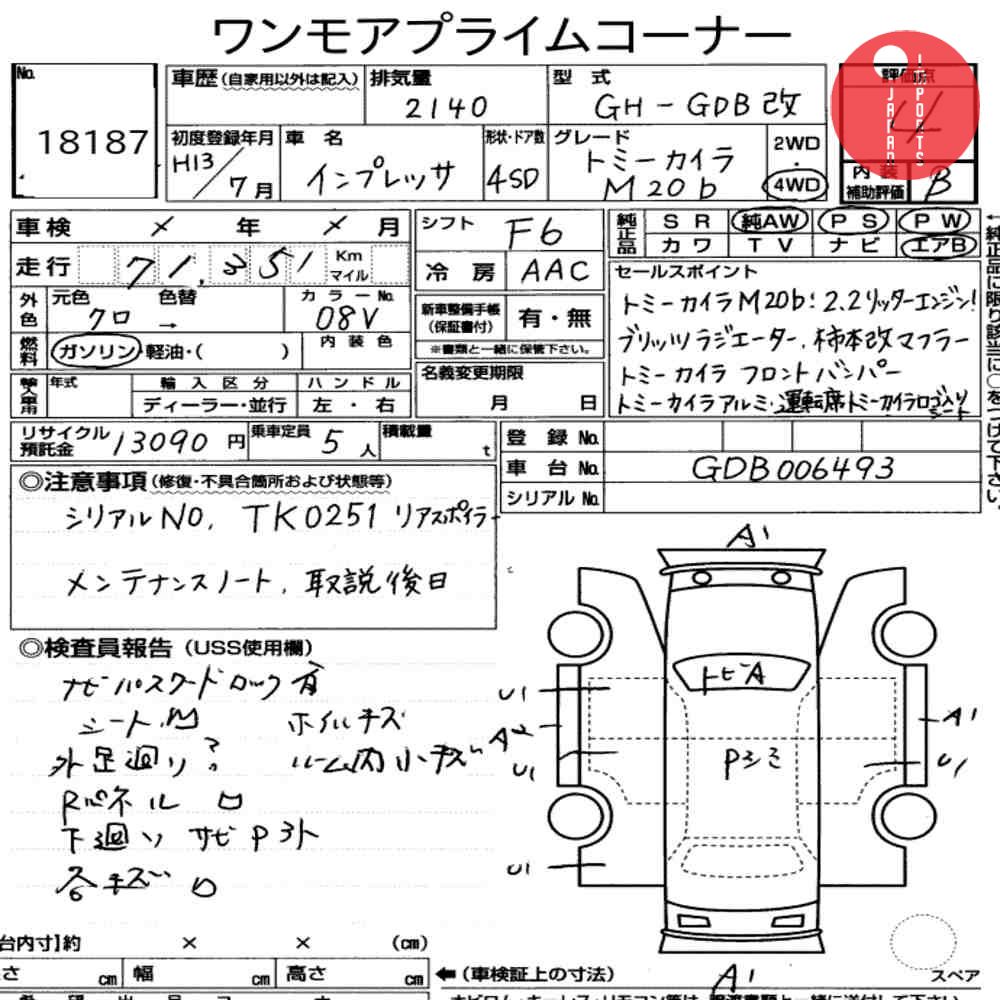 ワンモアプライムコーナー
No.
18187
車歴 (自家用以外は記入)
排気量
2140
型 式
GH-GDB改
評価点
4
JAPAN IMPORTS
初度登録年月
H13/7月
車 名
インプレッサ
形状・ドア数
4SD
グレード
トミーカイラ
M20b
2WD
・
4WD
内装
補助評価
B
車検 × 年 × 月
シフト
F6
純正品
SR 純AW PS PW
カワ TV ナビ エアB
走行 71,351 Km マイル
冷房 AAC
セールスポイント
トミーカイラM20b!2.2リッターエンジン!
ブリッツラジエーター、柿本改マフラー
トミーカイラ フロントバンパー
トミーカイラアルミ・運転席トミーカイラロゴ入りシート
外色
元色 色替
クロ →
カラーNo.
08V
新車整備手帳
(保証書付)
有・無
※書類と一緒に保管下さい。
燃料
ガソリン・軽油・( )
内装色
名義変更期限
月 日
年式
輸入区分
ディーラー・並行
ハンドル
左・右
リサイクル
預託金
13090円
乗車定員
5人
積載量
t
登録 No.
車台 No.
GDB006493
シリアル No.
◎注意事項 (修復・不具合箇所および状態等)
シリアルNO. TK0251 リアスポイラー
メンテナンスノート、取説後日
◎検査員報告 (USS使用欄)
ナビパスワードロック有
シート M ホイルキズ
外足廻り? ルーム内小キズ
Rパネル ロ
下廻り サビ Pヌト
各キズ ロ
A1
トビA
U1
U1
A1
U1
Pシミ
U1
A1
スペア
台内寸】約 × × (cm)
さ cm 幅 cm 高さ cm
←(車検証上の寸法)